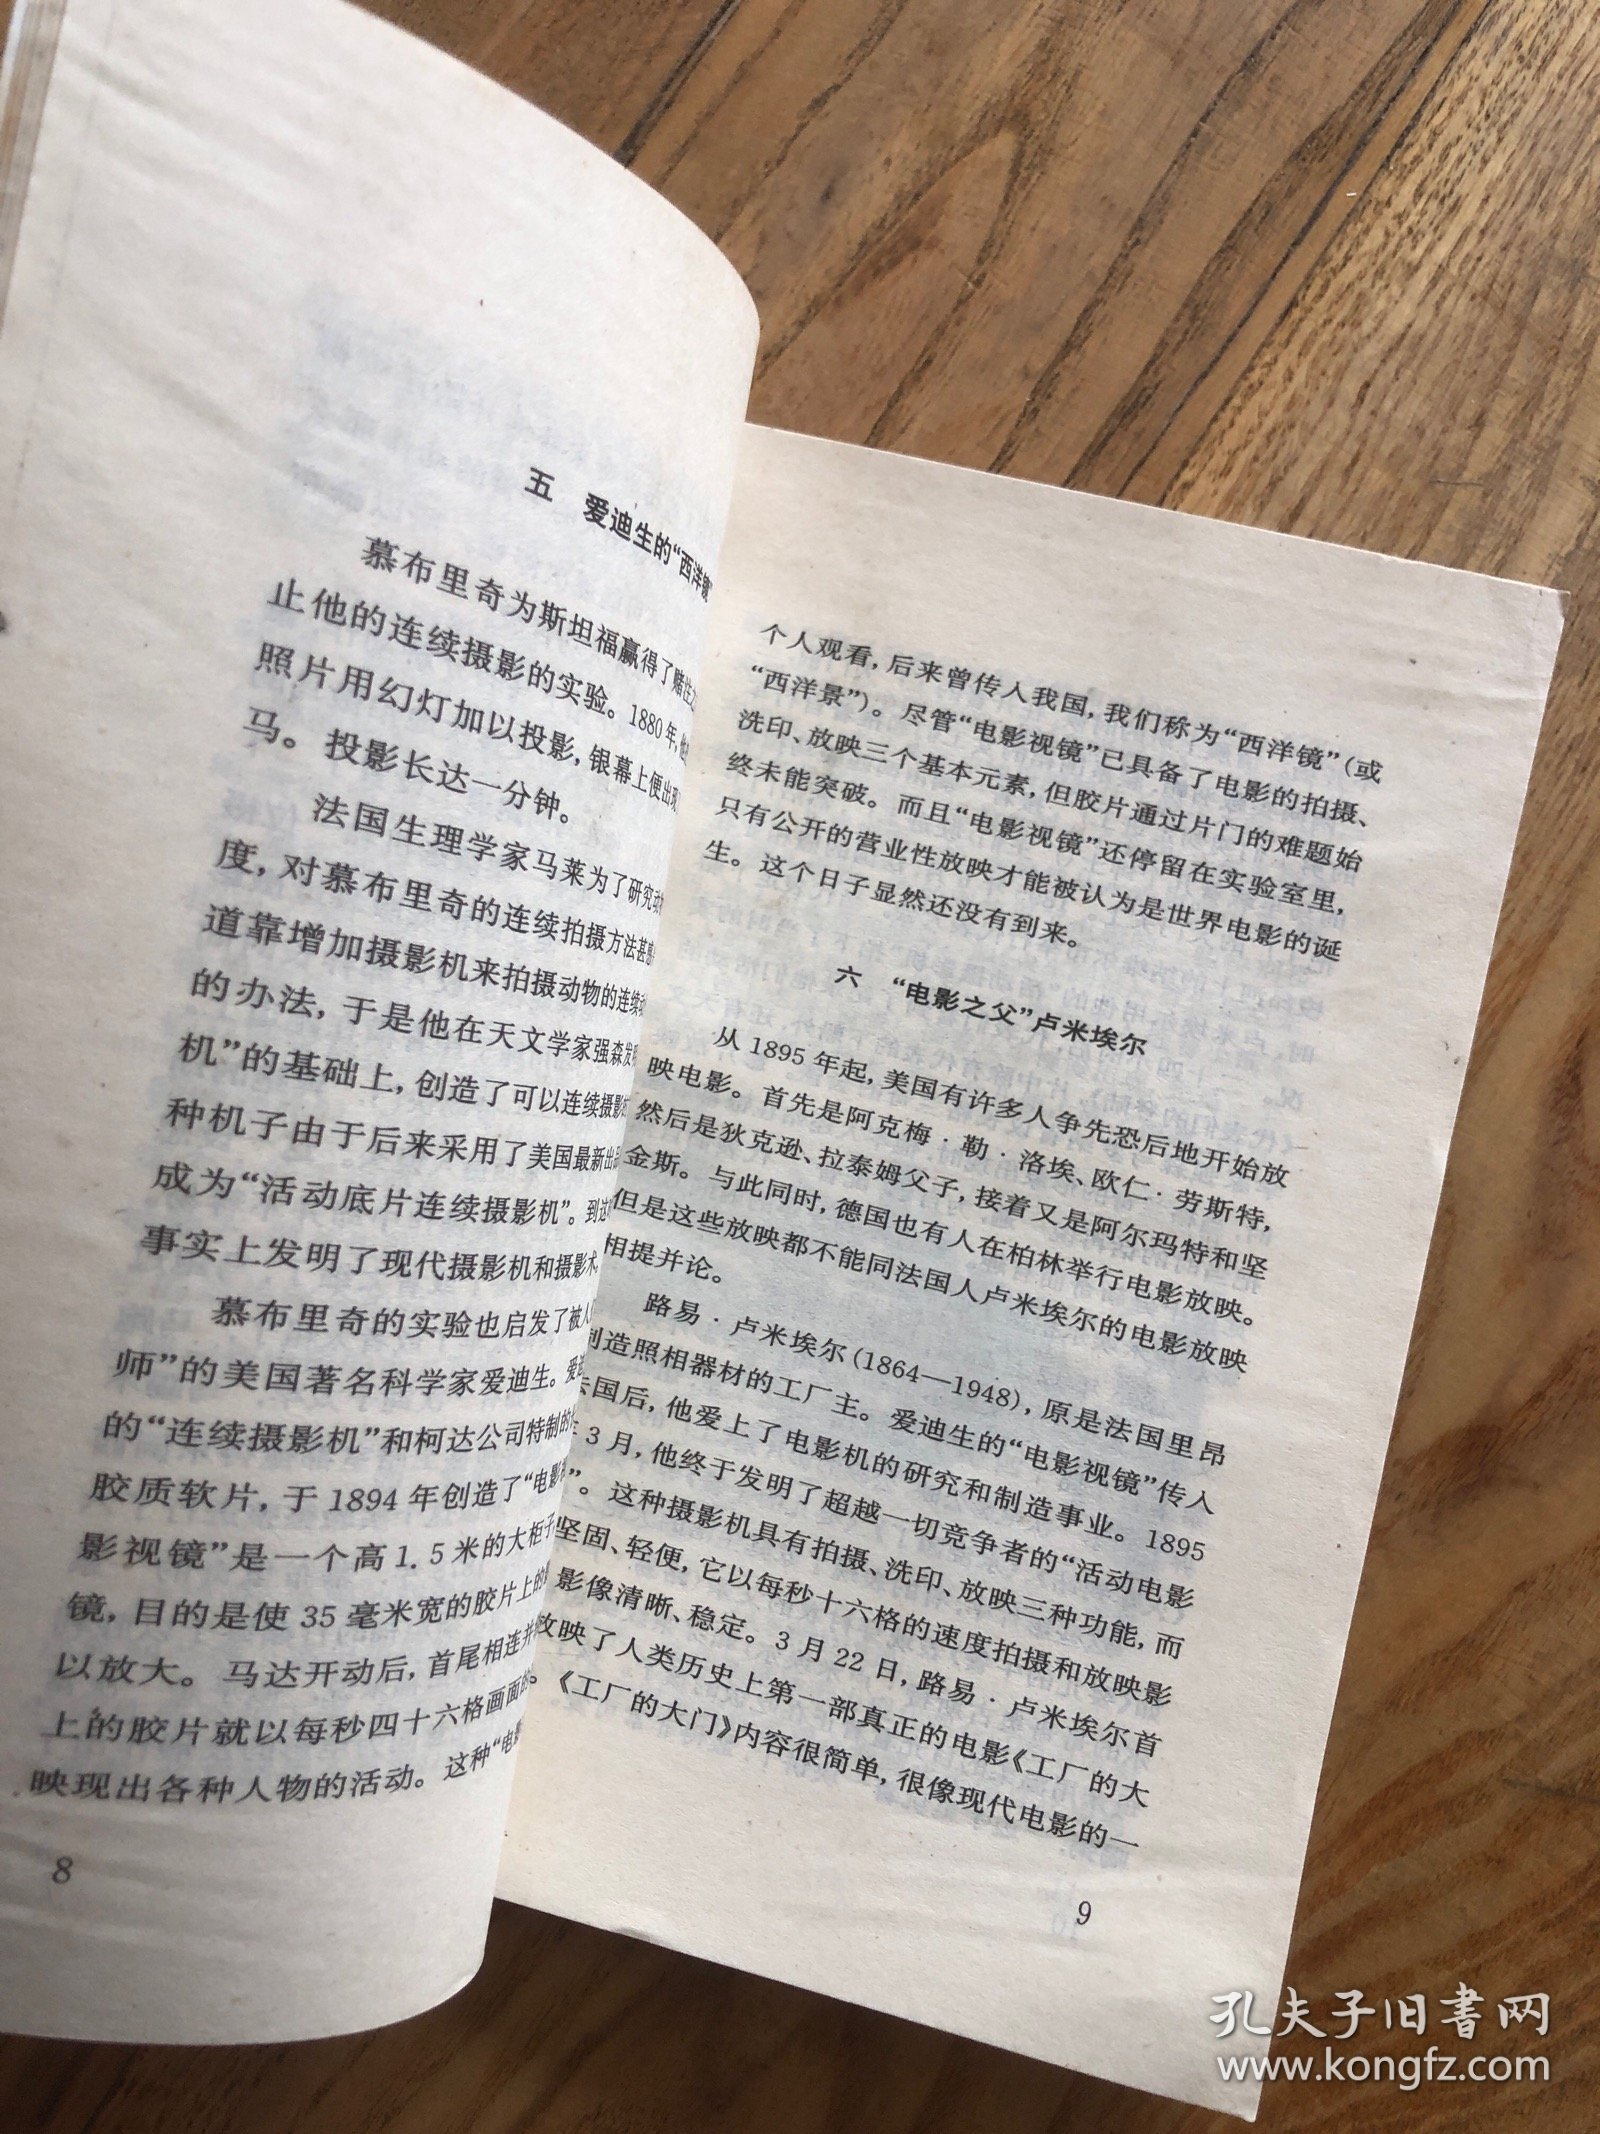 五 爱迪生的“西洋镜”
慕布里奇为斯坦福赢得了赌注之
止他的连续摄影的实验。1880年,他
照片用幻灯加以投影,银幕上便出现
马。投影长达一分钟。
法国生理学家马莱为了研究动
度,对慕布里奇的连续拍摄方法甚感
道靠增加摄影机来拍摄动物的连续动
的办法,于是他在天文学家强森发明
机”的基础上,创造了可以连续摄影
种机子由于后来采用了美国最新出品
成为“活动底片连续摄影机”。到这
事实上发明了现代摄影机和摄影术。
慕布里奇的实验也启发了被人
师”的美国著名科学家爱迪生。爱迪
的“连续摄影机”和柯达公司特制的
胶质软片,于1894年创造了“电影视
影视镜”是一个高1.5米的大柜子
镜,目的是使35毫米宽的胶片上的
以放大。马达开动后,首尾相连并
上的胶片就以每秒四十六格画面的
映现出各种人物的活动。这种“电影
8
个人观看,后来曾传入我国,我们称为“西洋镜”(或
“西洋景”)。尽管“电影视镜”已具备了电影的拍摄、
洗印、放映三个基本元素,但胶片通过片门的难题始
终未能突破。而且“电影视镜”还停留在实验室里,
只有公开的营业性放映才能被认为是世界电影的诞
生。这个日子显然还没有到来。
六 “电影之父”卢米埃尔
从1895年起,美国有许多人争先恐后地开始放
映电影。首先是阿克梅·勒·洛埃、欧仁·劳斯特,
然后是狄克逊、拉泰姆父子,接着又是阿尔玛特和坚
金斯。与此同时,德国也有人在柏林举行电影放映。
但是这些放映都不能同法国人卢米埃尔的电影放映
相提并论。
路易·卢米埃尔(1864—1948),原是法国里昂
制造照相器材的工厂主。爱迪生的“电影视镜”传入
法国后,他爱上了电影机的研究和制造事业。1895
年3月,他终于发明了超越一切竞争者的“活动电影
”。这种摄影机具有拍摄、洗印、放映三种功能,而
坚固、轻便,它以每秒十六格的速度拍摄和放映影
影像清晰、稳定。3月22日,路易·卢米埃尔首
放映了人类历史上第一部真正的电影《工厂的大
。《工厂的大门》内容很简单,很像现代电影的一
9
孔夫子旧书网
www.kongfz.com